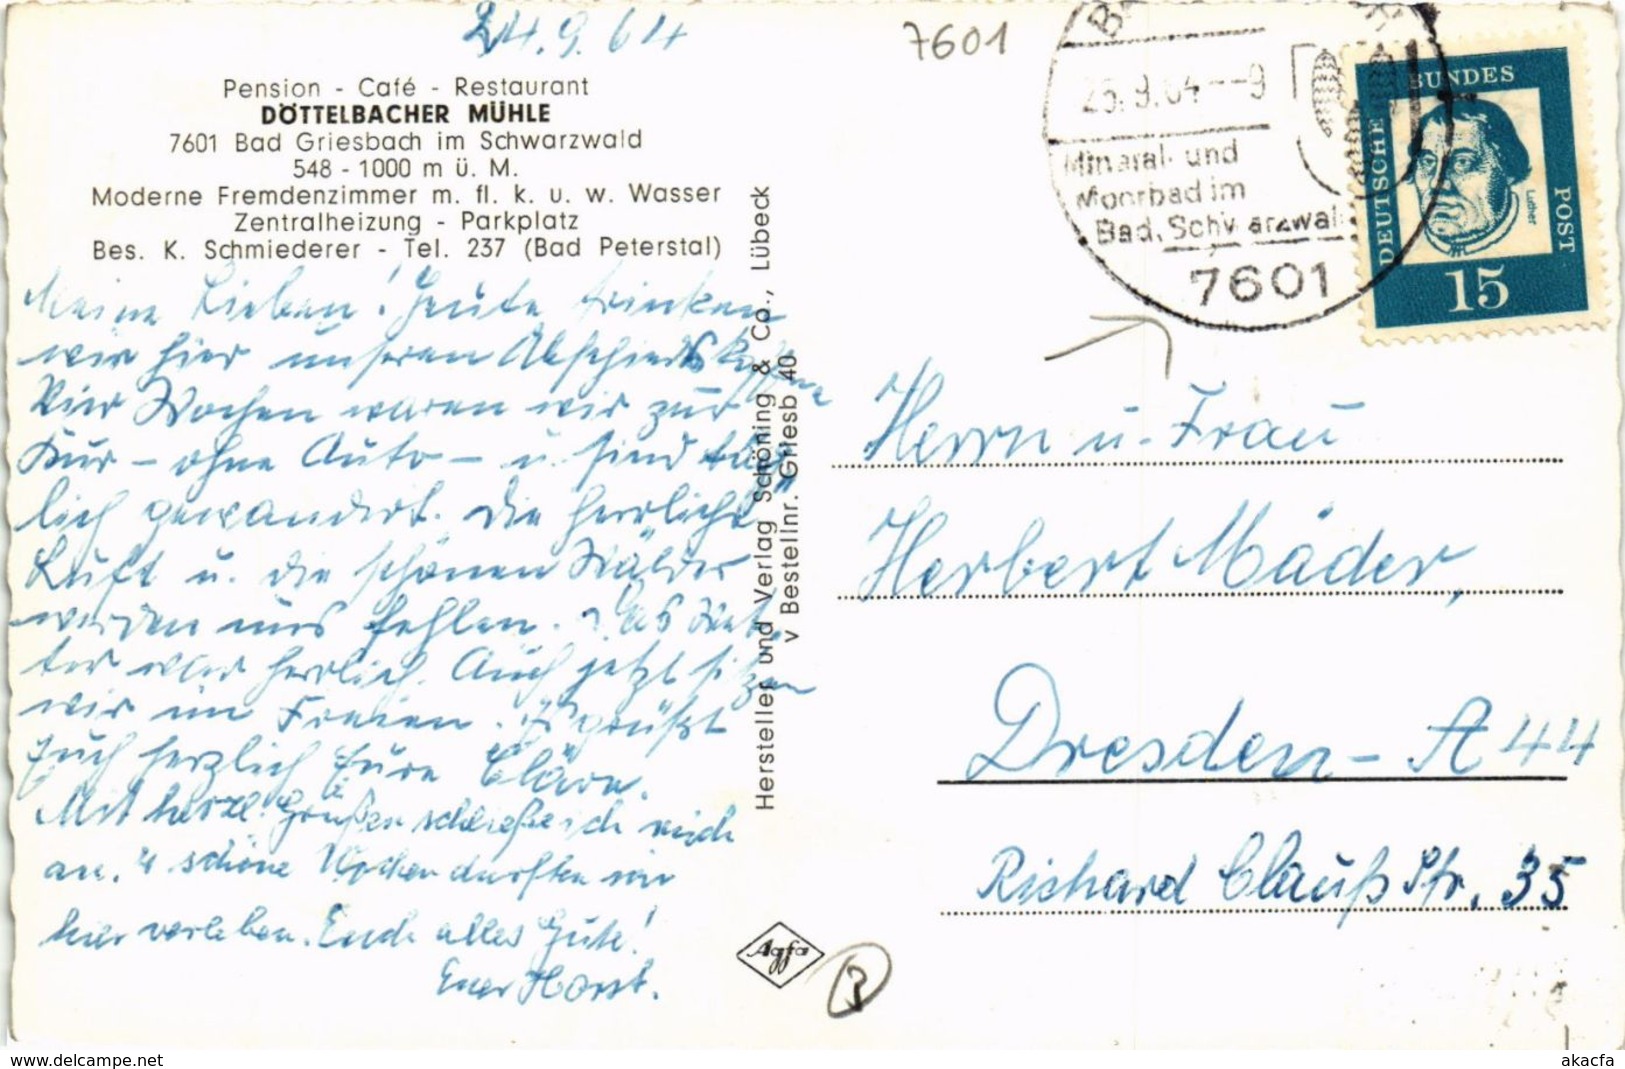 24.9.64
7601
Pension - Café - Restaurant
DÖTTELBACHER MÜHLE
7601 Bad Griesbach im Schwarzwald
548 - 1000 m ü. M.
Moderne Fremdenzimmer m. fl. k. u. w. Wasser
Zentralheizung - Parkplatz
Bes. K. Schmiederer - Tel. 237 (Bad Peterstal)
Meine Lieben! Heute trinken
wir hier unseren Abschiedskaffee
Vier Wochen waren wir zur
Kur - ohne Auto - u. sind täg-
lich gewandert. Die herrliche
Luft u. die schönen Wälder
werden uns fehlen. Das Wet-
ter war herrlich. Auch jetzt sitzen
wir im Freien. Es grüßt
Euch herzlich Eure Cläre.
Mit herzl. Grüßen schließe ich mich
an. 4 schöne Wochen durften wir
hier verleben. Euch alles Gute!
Euer Horst.
Hersteller und Verlag Schöning & Co., Lübeck
v Bestellnr. Griesb 40
Agfa
3
25.9.64--9
Mineral- und
Moorbad im
Bad. Schwarzwald
7601
DEUTSCHE
BUNDES
POST
Luther
15
Herrn u. Frau
Herbert Mäder,
Dresden - A 44
Richard Clauß Str. 35
akacfa
www.delcampe.net